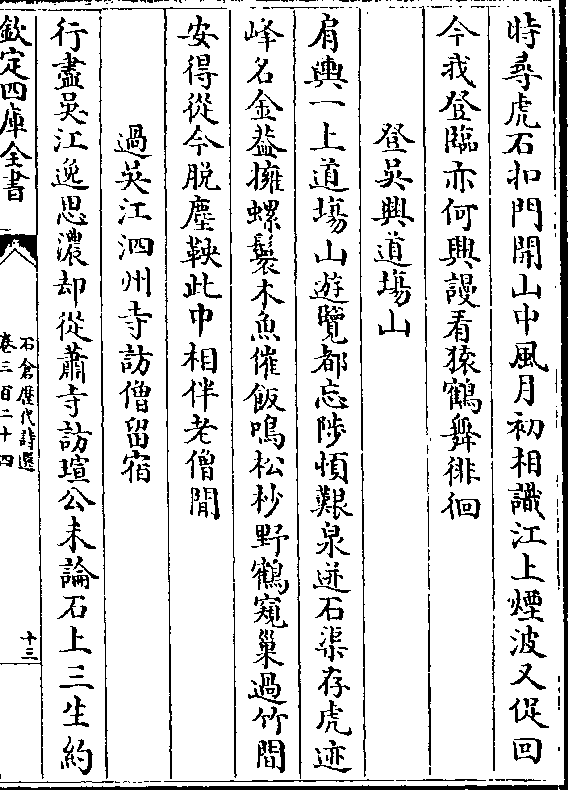 時尋虎石扣門開山中風月初相識江上煙波又促回
今我登臨亦何興謾看猿鶴舞徘徊
登吳興道塲山
肩輿一上道塲山遊覽都忘陟㥧艱泉迸石渠存虎迹
峰名金葢擁螺鬟木魚催飯鳴松杪野鶴窺巢過竹間
安得從今脱塵鞅此中相伴老僧閒
過吳江泗州寺訪僧留宿
行盡吳江逸思濃却從蕭寺訪瑄公未論石上三生約
欽定四庫全書
石倉歴代詩選
卷三百二十四
十三